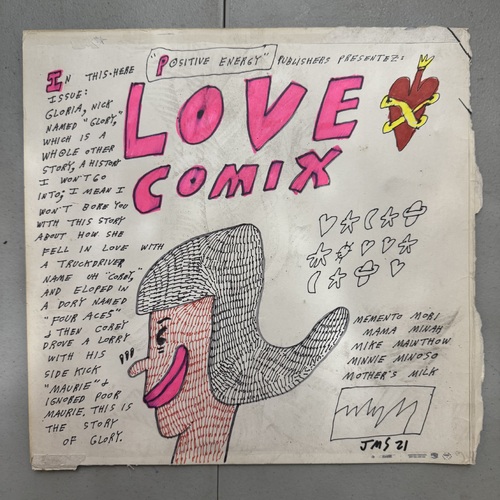 "POSITIVE ENERGY" PUBLISHERS PRESENTEZ:
LOVE
COMIX
IN THIS-HERE
ISSUE:
GLORIA, NICK
NAMED "GLORY,"
WHICH IS A
WHOLE OTHER
STORY, A HISTORY
I WON'T GO
INTO; I MEAN I
WON'T BORE YOU
WITH THIS STORY
ABOUT HOW SHE
FELL IN LOVE WITH
A TRUCKDRIVER
NAME UH "COREY,"
AND ELOPED IN
A DORY NAMED
"FOUR ACES"
& THEN COREY
DROVE A LORRY
WITH HIS
SIDE KICK
"MAURIE" &
IGNORED POOR
MAURIE. THIS IS
THE STORY
OF GLORY.
MEMENTO MORI
MAMA MINAH
MIKE MAINTHOW
MINNIE MINOSO
MOTHER'S MILK
JMS 21